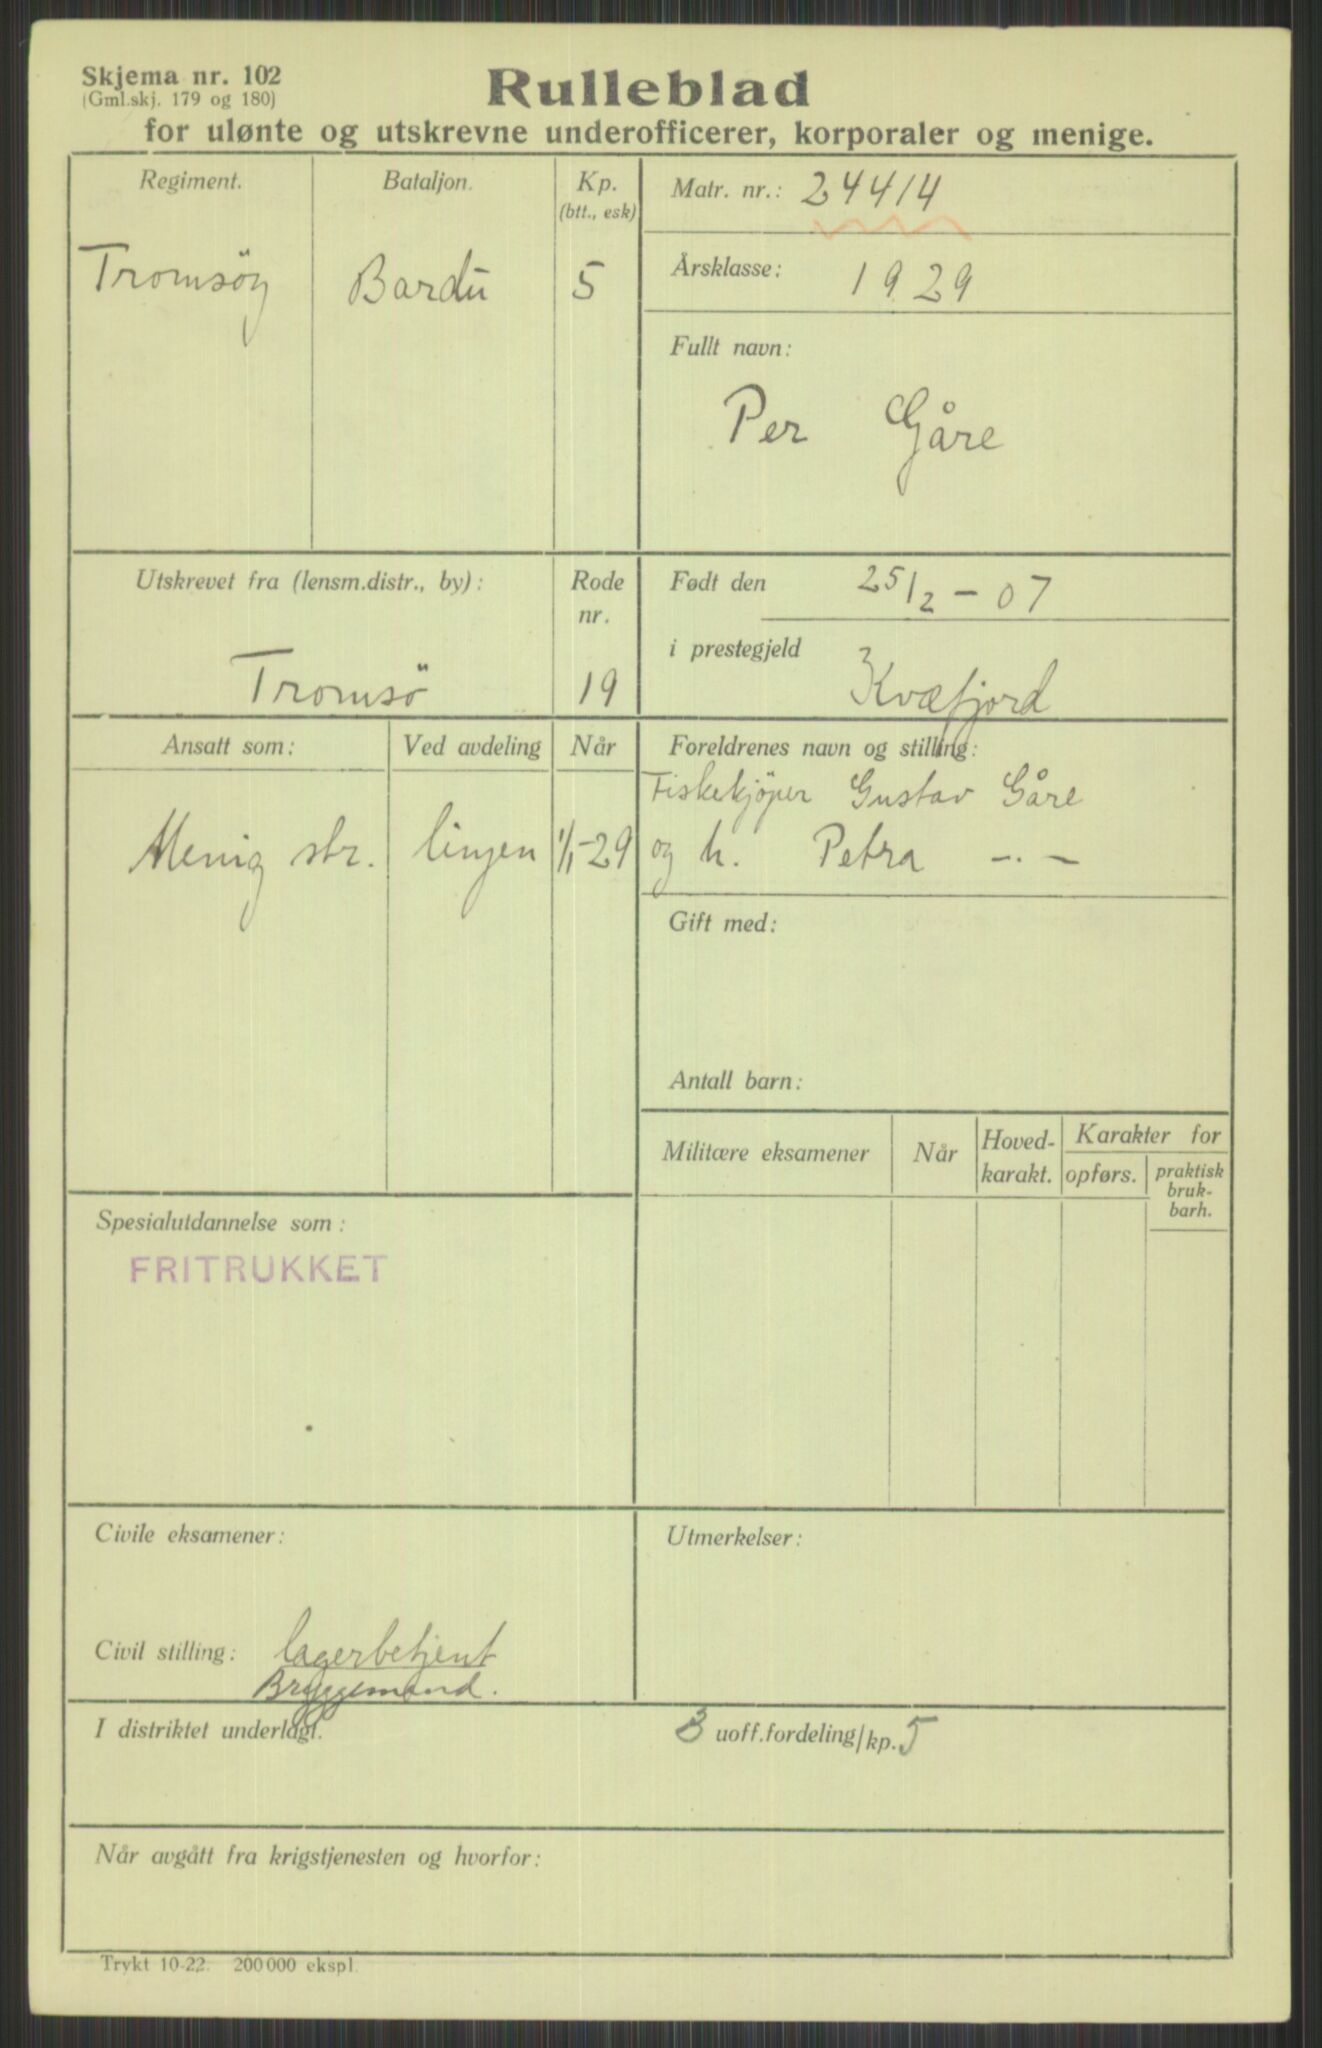 Skjema nr. 102
(Gml.skj. 179 og 180)
Rulleblad
for ulønte og utskrevne underofficerer, korporaler og menige.
Regiment.
Bataljon.
Kp.
(btt., esk)
Tromsöy
Bardu
5
Matr. nr.: 24414
Årsklasse: 1929
Fullt navn:
Per Gåre
Utskrevet fra (lensm.distr., by):
Tromsö
Rode
nr.
19
Født den 25/2 - 07
i prestegjeld Kvæfjord
Ansatt som:
Ved avdeling
Når
Menig str.
linjen
1/1-29
Foreldrenes navn og stilling:
Fiskekjöper Gustav Gåre
og h. Petra -.-
Gift med:
Antall barn:
Militære eksamener
Når
Hoved-
karakt.
Karakter for
opførs.
praktisk
bruk-
barh.
Spesialutdannelse som:
FRITRUKKET
Civile eksamener:
Civil stilling: lagerbetjent
Bryggemand.
Utmerkelser:
I distriktet underlagt.
3 uoff.fordeling/kp. 5
Når avgått fra krigstjenesten og hvorfor:
Trykt 10-22. 200 000 ekspl.